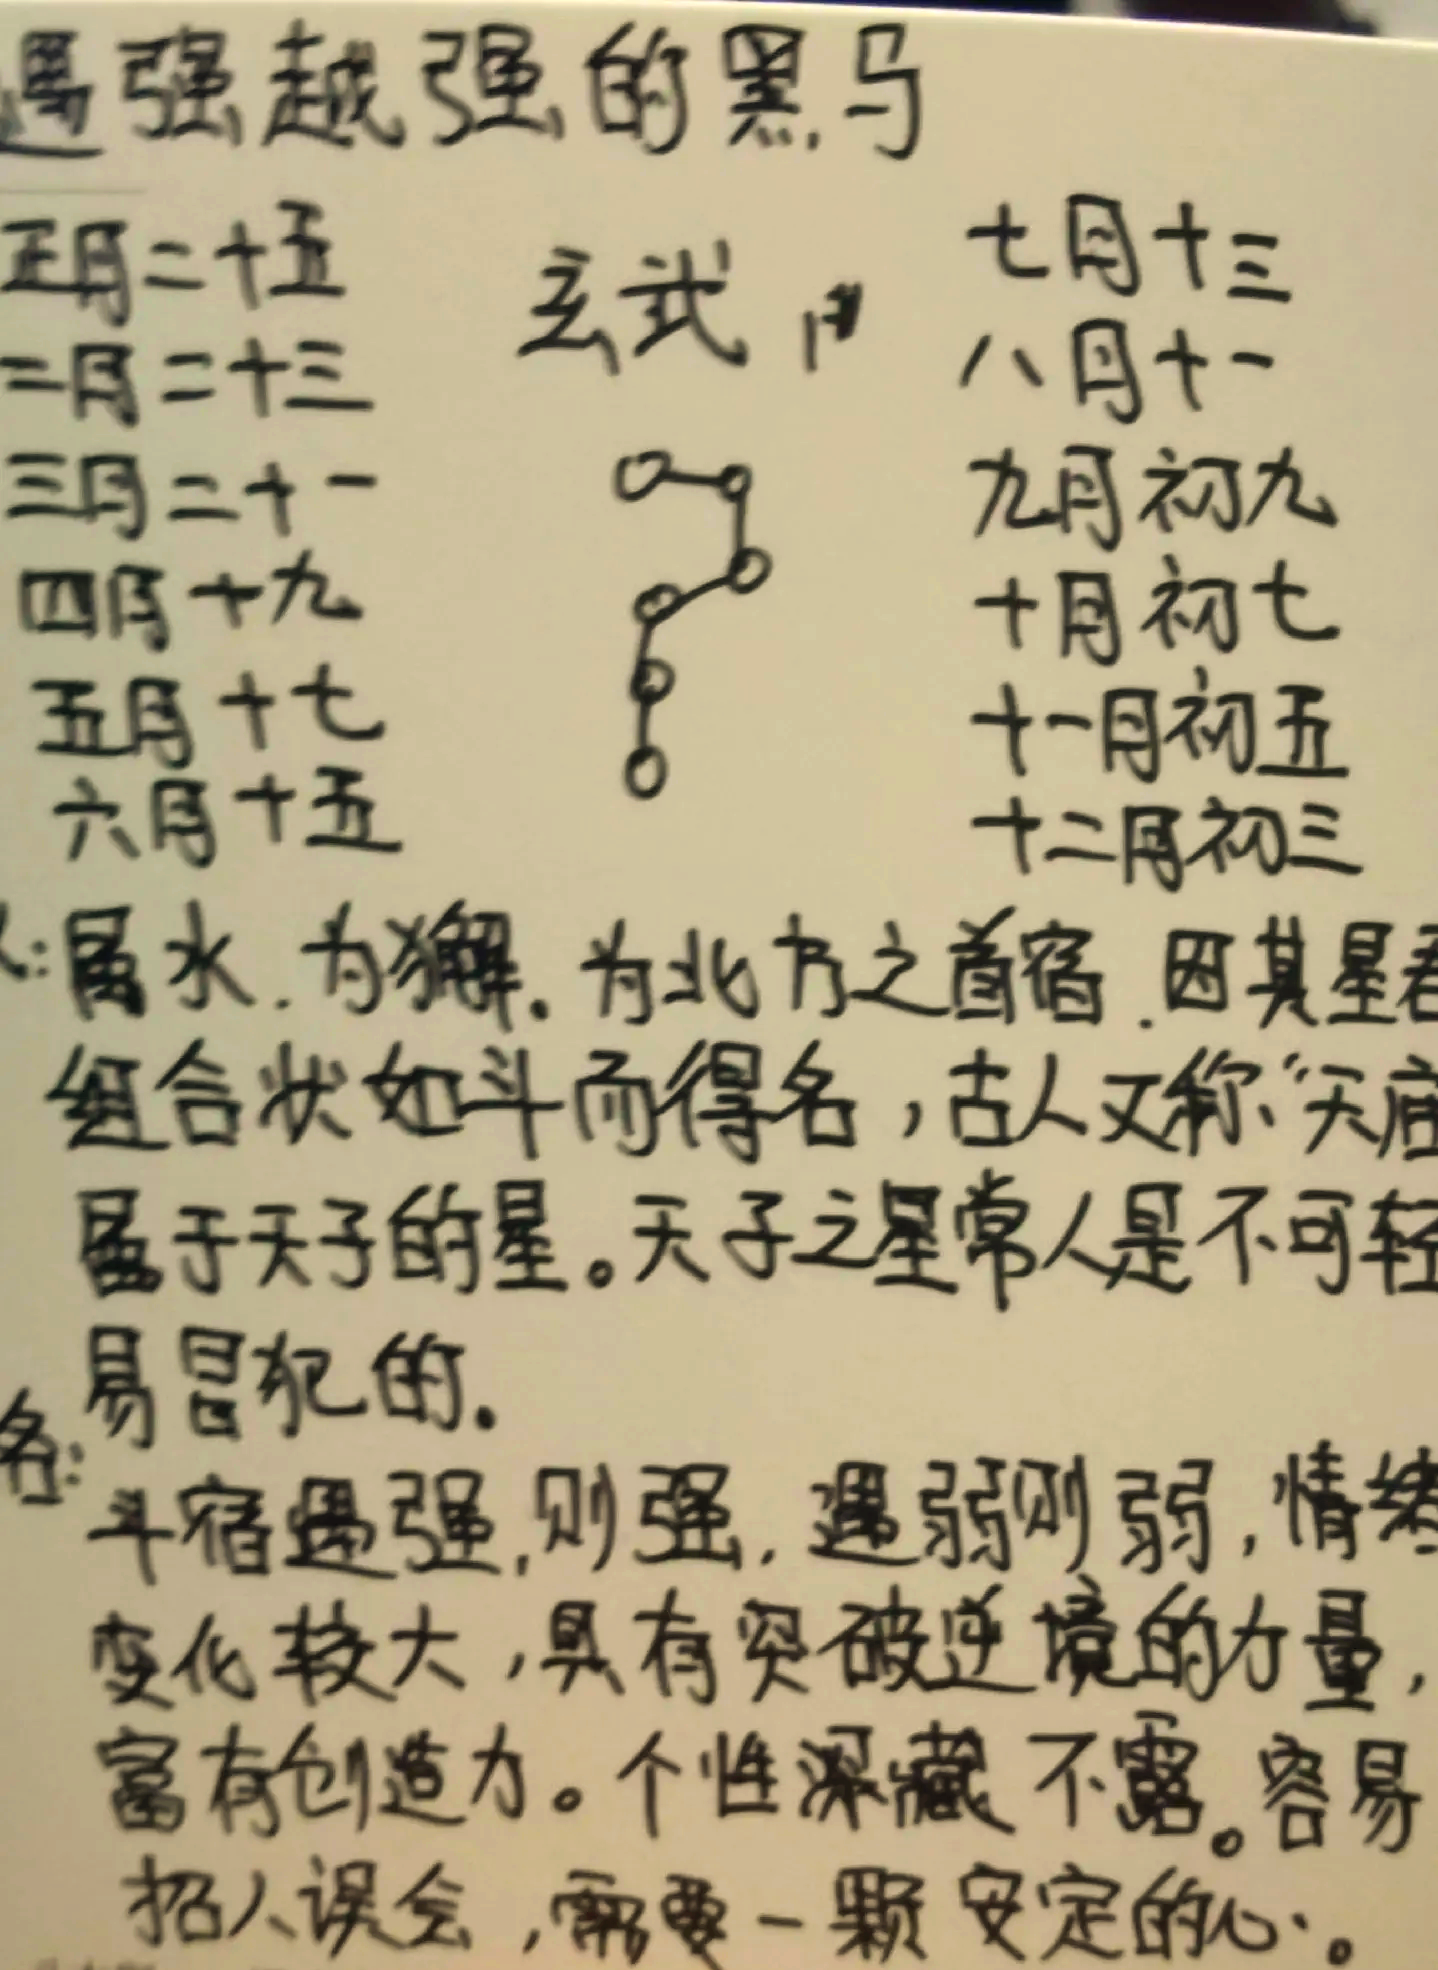 遇强越强的黑马
正月二十五
二月二十三
三月二十一
四月十九
五月十七
六月十五
玄武
七月十三
八月十一
九月初九
十月初七
十一月初五
十二月初三
属水.为獬.为北方之首宿.因其星君
组合状如斗而得名，古人又称“天庙
属于天子的星。天子之星常人是不可轻
易冒犯的.
名:
斗宿遇强,则强,遇弱则弱,情绪
变化较大,具有突破逆境的力量,
富有创造力。个性深藏不露。容易
招人误会,需要一颗安定的心.。